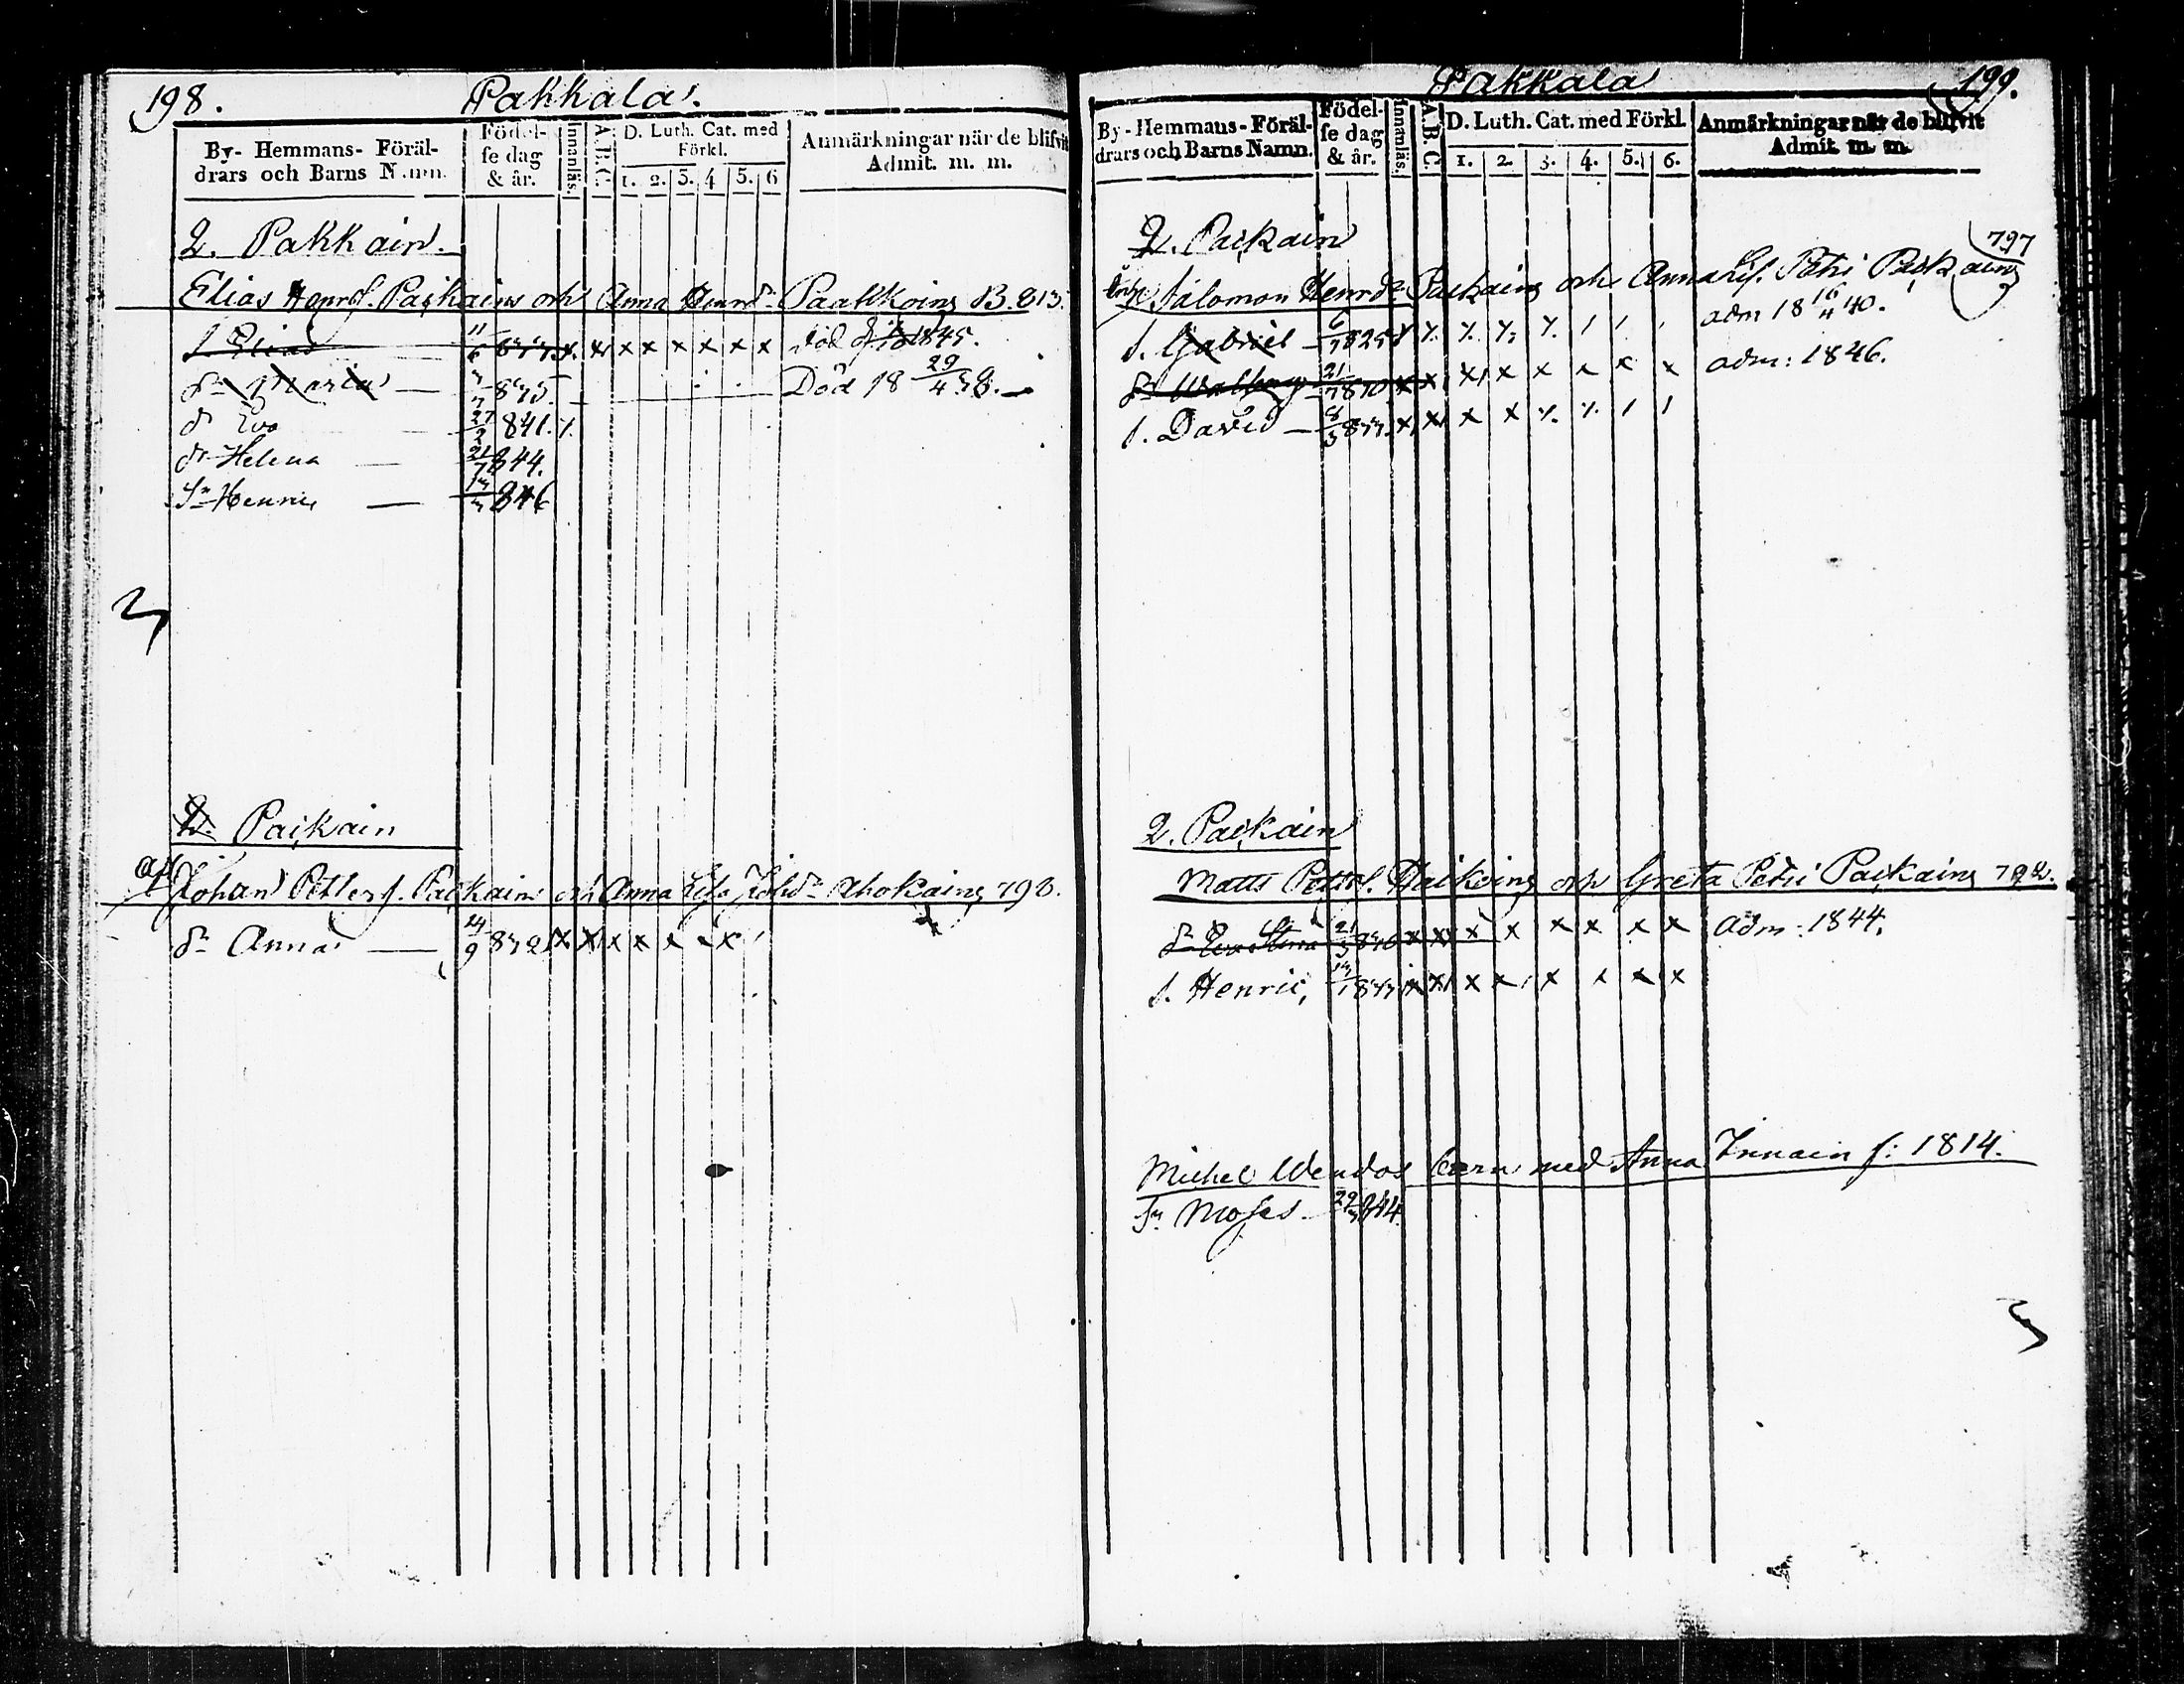 198.
Pakkala.
By- Hemmans- Föräl-
drars och Barns N.mn.
Födel-
se dag
& år.
Innanläs.
A.B.C.
D. Luth. Cat. med
Förkl.
1. 2. 3. 4 5. 6
Anmärkningar när de blifvit
Admit. m. m.
2. Pakkain.
Elias Henrs. Paikains och Anna Henrdr Paakkoins B. 813.
s. Elias 11/6 833. x. x x x x x x x död 1845.
dr Maria 835. Död 18 29/4 38.
dr Eva 27/2 841.
dr Helena 21/7 844.
Sn Henric 846
2. Paikain
Johan Petters. Paikain och Anna Lisa Johdr Ahokains 798.
dr Anna 9 832 x x x x x x x
Pakkala
199.
By-Hemmans-Föräl-
drars och Barns Namn.
Födel-
se dag
& år.
Innanläs.
A.B.C.
D. Luth. Cat. med Förkl.
1. 2. 3. 4. 5. 6.
Anmärkningar när de blifvit
Admit. m. m.
2. Paikain
797
Salomon Henrs Paikains och Anna Lis. Petri Paikains
s. Gabriel 825 adm 18 16/4 40.
dr Walborg 21/7 830 x x x x x x x x adm: 1846.
s. David 8/3 833. x x x x
2. Paikain
Matts Petters. Haikoins och Greta Petri Paikains 792.
dr Eva Stina 21/3 x x x x x x x x adm: 1844.
s. Henric, 833 x x x x x x x x
Michel Wendos barn med Anna Innain f: 1814.
Sn Moses 844.